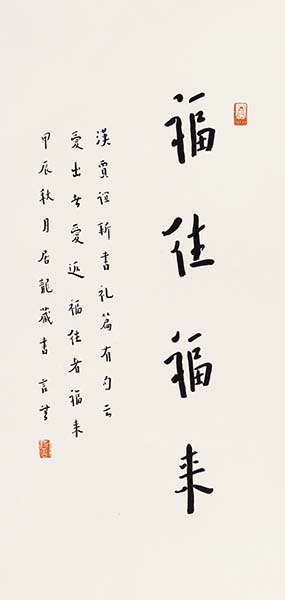 福往福来
漢賈誼新書礼篇有句云
愛出者愛返福往者福来
甲辰秋月居龍藏書言芝